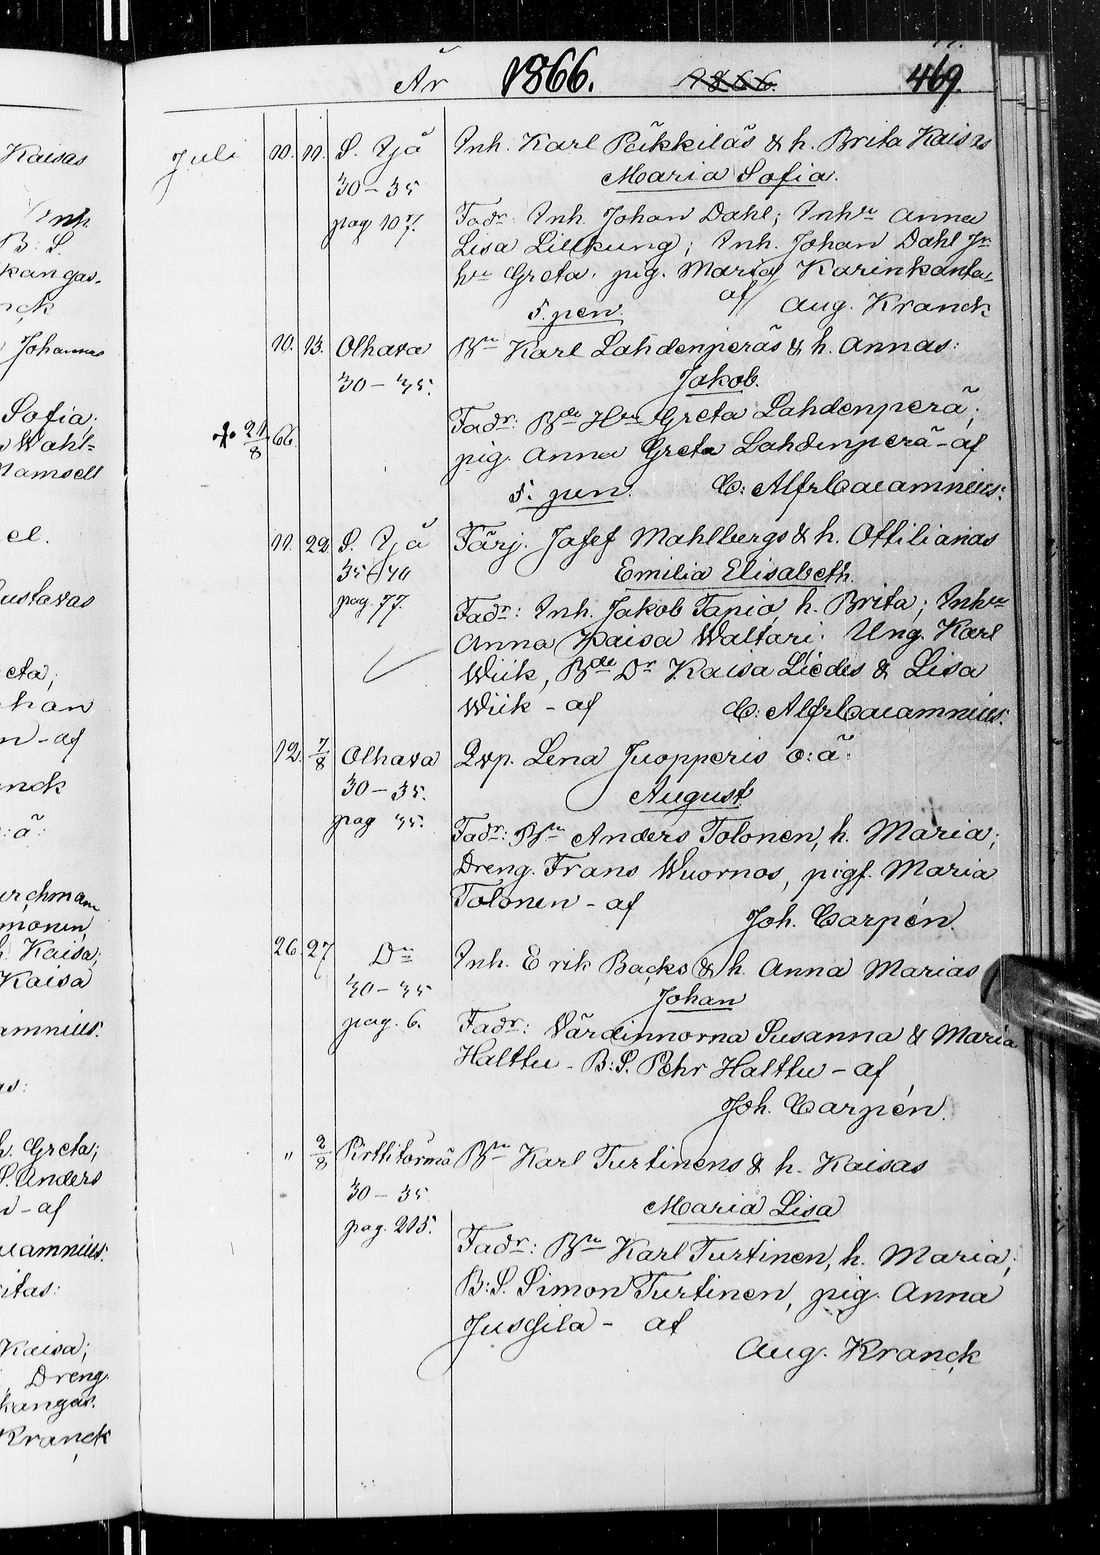 År 1866. 1866. 469.
Juli 10. 11. S. Ijå Inh. Karl Päkkiläs & h. Brita Kaisas
30–35 Maria Sofia.
pag 107. Fadr: Inh. Johan Dahl; Inhn Anna
Lisa Lillkung; Inh. Johan Dahl Jr
hn Greta. pig. Maria Karinkanta
af
5. pen. Aug. Kranck
10. 13. Olhava Bn Karl Lahdenperäs & h. Annas:
30–35. Jakob.
Fadr: Bde Hn Greta Lahdenperä;
+ 21/8 66. pig. Anna Greta Lahdenperä – af
5. pen. C: Alfr Cajamnius:
11. 22 S. Ijå Färj. Josef Mahlbergs & h. Ottilianas
35–40 Emilia Elisabeth.
pag. 77. Fadr: Inh. Jakob Tapio, h. Brita; Inhn
Anna Kaisa Waltari. Ung. Karl
Wiik, Bde Dr Kaisa Liedes & Lisa
Wiik – af C: Alfr Cajamnius.
12. 7/8 Olhava Qvp. Lena Juopperis o: ä:
30–35. August
pag 35. Fadr: Bn Anders Tolonen, h. Maria;
Dreng. Frans Wuornos, pigf. Maria
Tolonen – af
Joh. Carpén.
26. 27 Do Inh. Erik Backs & h. Anna Marias
30–35 Johan
pag. 6. Fadr: Värdinnorna Susanna & Maria
Halttu – B: S. Pehr Halttu – af
Joh. Carpén.
" 2/8 Pirttitörmä Bn Karl Turtinens & h. Kaisas
30–35 Maria Lisa
pag. 215. Fadr: Bn Karl Turtinen, h. Maria;
B: S. Simon Turtinen, pig. Anna
Juschila – af
Aug. Kranck
Kaisas
Inh.
B: S.
kangas.
Johannes
Sofia;
Wahl=
Mamsell
el.
Gustavas
eta;
han
n – af
nck
: ä:
urchmann
monen,
h. Kaisa;
Kaisa
amnius:
as:
h. Greta;
S. Anders
– af
amnius.
itas:
Kaisa;
Dreng
kangas.
Kranck